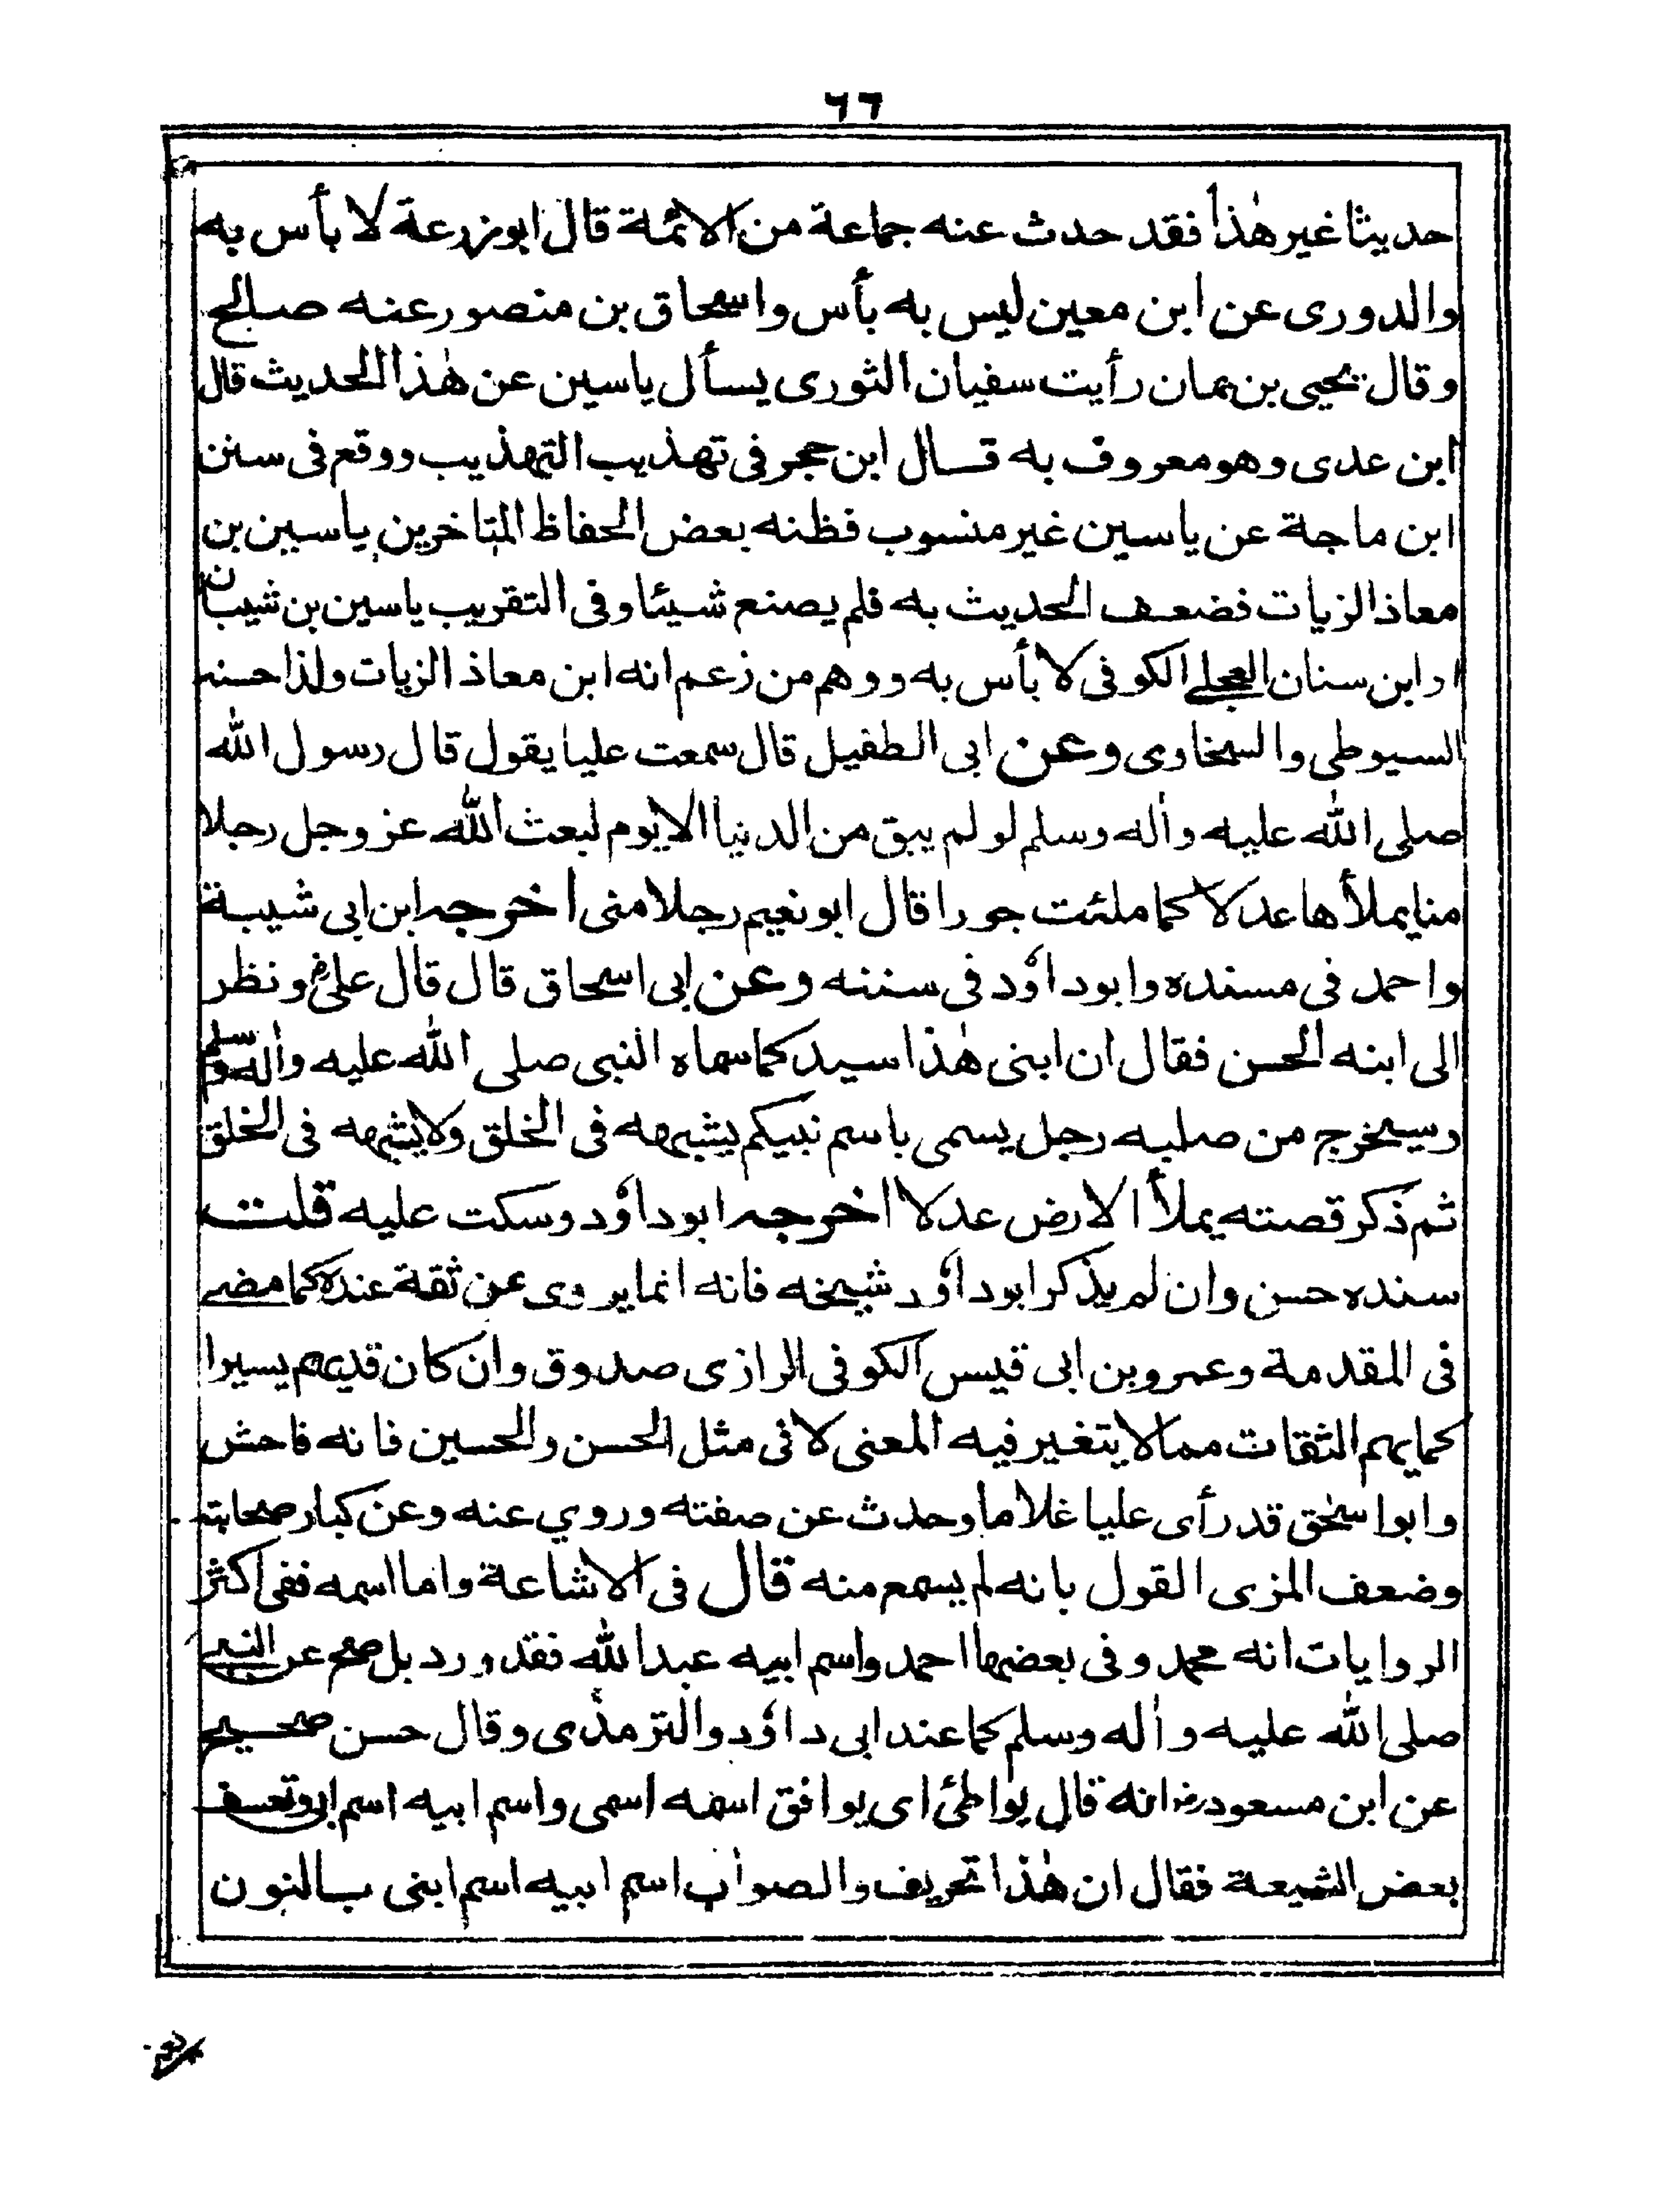 ٦٦
حديثا غير هٰذا فقد حدث عنه جماعة من الائمة قال ابوزرعة لا بأس به
والدورى عن ابن معين ليس به بأس واسحاق بن منصور عنه صالح
وقال يحيى بن يمان رأيت سفيان الثورى يسأل ياسين عن هٰذا الحديث قال
ابن عدى وهو معروف به قال ابن حجر فى تهذيب التهذيب ووقع فى سنن
ابن ماجة عن ياسين غير منسوب فظنه بعض الحفاظ المتاخرين ياسين بن
معاذ الزيات فضعف الحديث به فلم يصنع شيئا وفى التقريب ياسين بن شيبان
او ابن سنان العجلى الكوفى لا بأس به ووهم من زعم انه ابن معاذ الزيات ولذا حسنه
السيوطى والسخاوى وعن ابى الطفيل قال سمعت عليا يقول قال رسول الله
صلى الله عليه واٰله وسلم لو لم يبق من الدنيا الا يوم لبعث الله عز وجل رجلا
منا يملأها عدلا كما ملئت جورا قال ابونعيم رجلا منى اخرجه ابن ابى شيبة
واحمد فى مسنده وابوداؤد فى سننه وعن ابى اسحاق قال قال علىؓ ونظر
الى ابنه الحسن فقال ان ابنى هٰذا سيد كما سماه النبى صلى الله عليه واٰله وسلم
وسيخرج من صلبه رجل يسمى باسم نبيكم يشبهه فى الخلق ولا يشبهه فى الخلق
ثم ذكر قصته يملأ الارض عدلا اخرجه ابوداؤد وسكت عليه قلت
سنده حسن وان لم يذكر ابوداؤد شيخه فانه انما يروى عن ثقة عنده كما مضى
فى المقدمة وعمرو بن ابى قيس الكوفى الرازى صدوق وان كان قديهم يسيرا
كما يهم الثقات مما لا يتغير فيه المعنى لا فى مثل الحسن والحسين فانه فاحش
وابو اسحٰق قد رأى عليا غلاما وحدث عن صفته وروي عنه وعن كبار صحابته
وضعف المزى القول بانه لم يسمع منه قال فى الاشاعة واما اسمه ففى اكثر
الروايات انه محمد وفى بعضها احمد واسم ابيه عبد الله فقد ورد بل صح عن النبى
صلى الله عليه واٰله وسلم كما عند ابى داؤد والترمذى وقال حسن صحيح
عن ابن مسعودرض انه قال يواطئ اى يوافق اسمه اسمى واسم ابيه اسم ابى وتعسف
بعض الشيعة فقال ان هٰذا تحريف والصواب اسم ابيه اسم ابنى بالنون